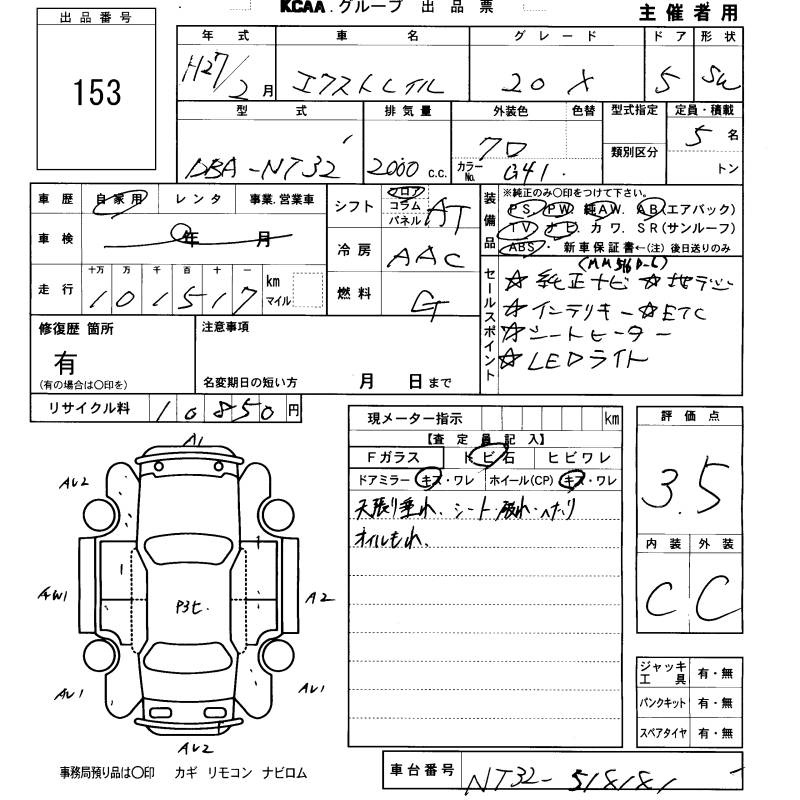 KCAA.グループ 出品票
主催者用
出品番号
153
年式 車名 グレード ドア 形状
H27/2月 エクストレイル 20 X 5 SW
型式 排気量 外装色 色替 型式指定 定員・積載
類別区分
DBA-NT32 2000 c.c. 7D カラーNo. G41 5名
トン
車歴 自家用 レンタ 事業.営業車
車検 年 月
走行 十万 万 千 百 十 一 km マイル
101517
シフト フロア コラム パネル AT
冷房 AAC
燃料 G
装備品
※純正のみ○印をつけて下さい。
PS. PW. 純AW. AB(エアバック)
TV ナビ カワ. SR(サンルーフ)
ABS・ 新車保証書←(注) 後日送りのみ
セールスポイント
(MM516D-L)
☆純正ナビ ☆地デジ
☆インテリキー ☆ETC
☆シートヒーター
☆LEDライト
修復歴 箇所
有
(有の場合は○印を)
注意事項
名変期日の短い方 月 日まで
リサイクル料 10850円
現メーター指示 km
【査定員記入】
Fガラス トビ石 ヒビワレ
ドアミラー キズ・ワレ ホイール(CP) キズ・ワレ
天張り垂れ、シート・破れ・ヘタリ
オイルもれ、
評価点
3.5
内装 外装
C C
ジャッキ工具 有・無
パンクキット 有・無
スペアタイヤ 有・無
A1
AU2 AU2
AW1 A2
P3ヒ.
AU1 AU1
AU2
事務局預り品は○印 カギ リモコン ナビロム
車台番号 NT32-518181